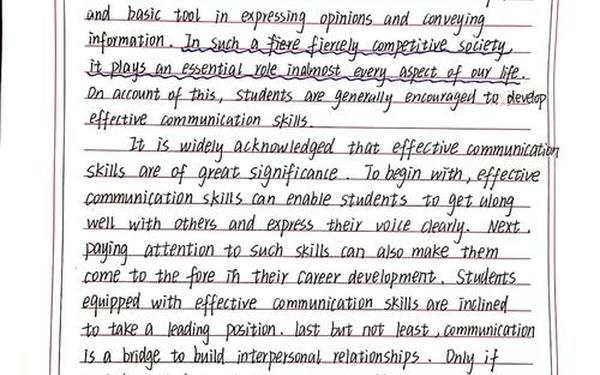 and basic tool in expressing opinions and conveying
information. In such a fiere fiercely competitive society,
it plays an essential role inalmost every aspect of our life.
On account of this, students are generally encouraged to develop
effective communication skills.
It is widely acknowledged that effective communication
skills are of great significance. To begin with, effective
communication skills can enable students to get along
well with others and express their voice clearly. Next,
paying attention to such skills can also make them
come to the fore in their career development. Students
equipped with effective communication skills are inclined
to take a leading position. last but not least, communication
is a bridge to build interpersonal relationships. Only if